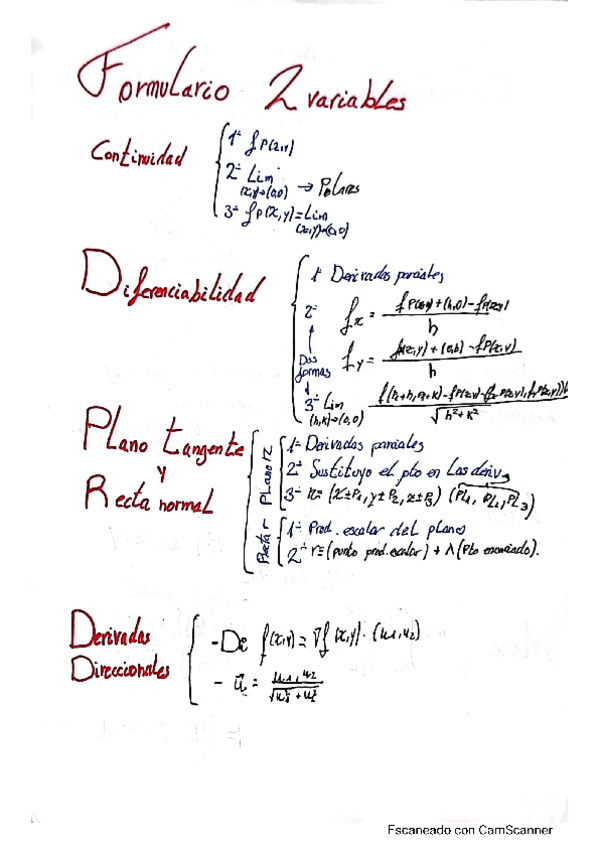 Formulario 2 variables
Continuidad
1º f P(x,y)
2º Lim (x,y)→(0,0) → Polares
3º f P(x,y) = Lim (x,y)→(0,0)
Diferenciabilidad
1º Derivadas parciales
2º fx = f P(x,y)+(h,0)-f P(x,y) / h
Dos formas
fy = f P(x,y)+(0,h)-f P(x,y) / h
3º Lim (h,k)→(0,0) √h²+k²
Plano tangente
y
Recta normal
Plano π
1º Derivadas parciales
2º Sustituyo el pto en las deriv.
3º π=(x±P1, y±P2, z±P3) (PL1, PL2, PL3)
Recta r
1º Prod. escalar del planos
2º r=(punto prod.escalar) + λ(Pto enunciado).
Derivadas
Direccionales
f(x,y) = ∇f(x,y)·(u1,u2)
- ū = u1,u2 / √u1²+u2²
Escaneado con CamScanner